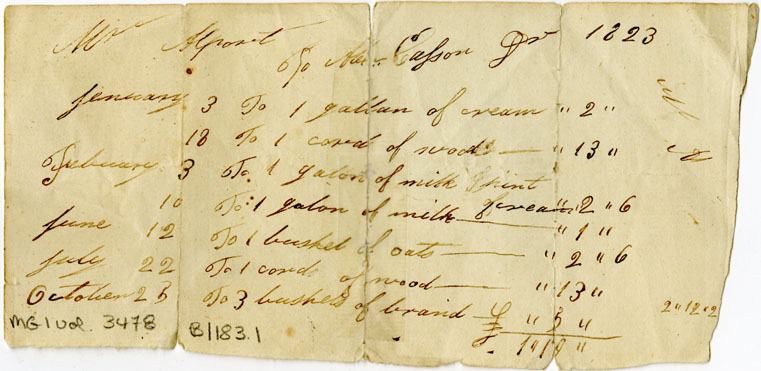 Mr Alport 1823
To Alex Casson Dr
jenuary 3 To 1 gallan of cream " 2 "
18 To 1 cord of wood — " 13 "
February 3 To 1 galon of milk & pint
of cream " 2 " 6
10 To 1 galon of milk — " 1 "
june 12 To 1 bushel of oats — " 2 " 6
july 22 To 1 cord of wood — " 13 "
October 23 To 3 bushels of brand £ " 3 "
2 " 12 " 2
MG 1 vol. 3478 B/183.1